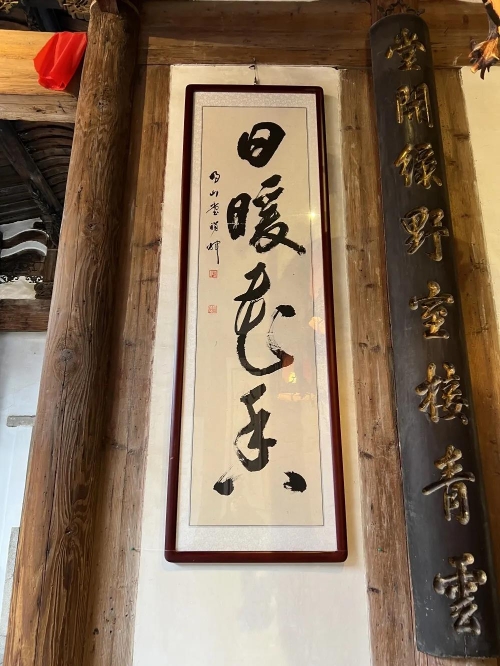 堂開綠野室接青雲
日暖花香